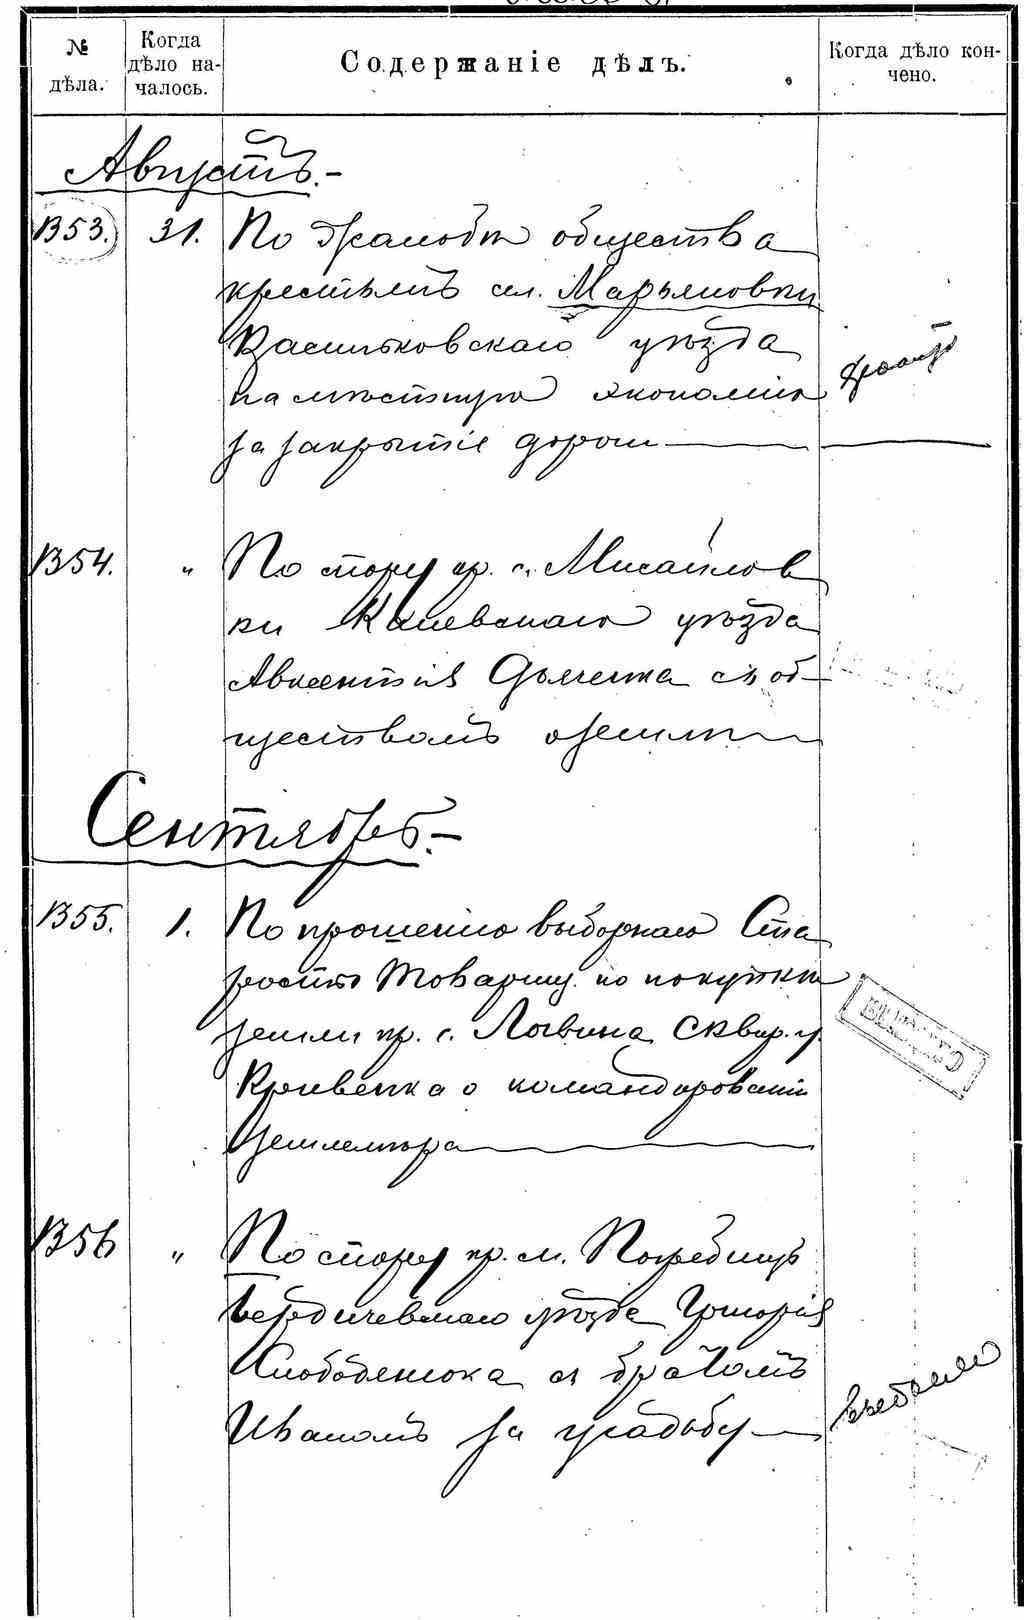 № дѣла.
Когда дѣло на-
чалось.
Содержаніе дѣлъ.
Когда дѣло кон-
чено.
Августъ.-
1353. 31. По жалобѣ общества
крестьянъ сел. Марьяновки
Васильковскаго уѣзда
на мѣстную экономію
за закрытіе дороги
1354. " По спору кр. с. Михайлов
ки Каневскаго уѣзда
Авксентія Дьяченка съ об-
ществомъ о землѣ
Сентябрь.-
1355. 1. По прошенію выборнаго Ста
росты Товарищ. по покупкѣ
земли кр. с. Логвина Сквир. у.
Кривенка о командированіи
землемѣра
1356 " По спору кр. м. Погребищъ
Бердичевскаго уѣзда Григорія
Слободенюка съ братомъ
Иваномъ за усадьбу